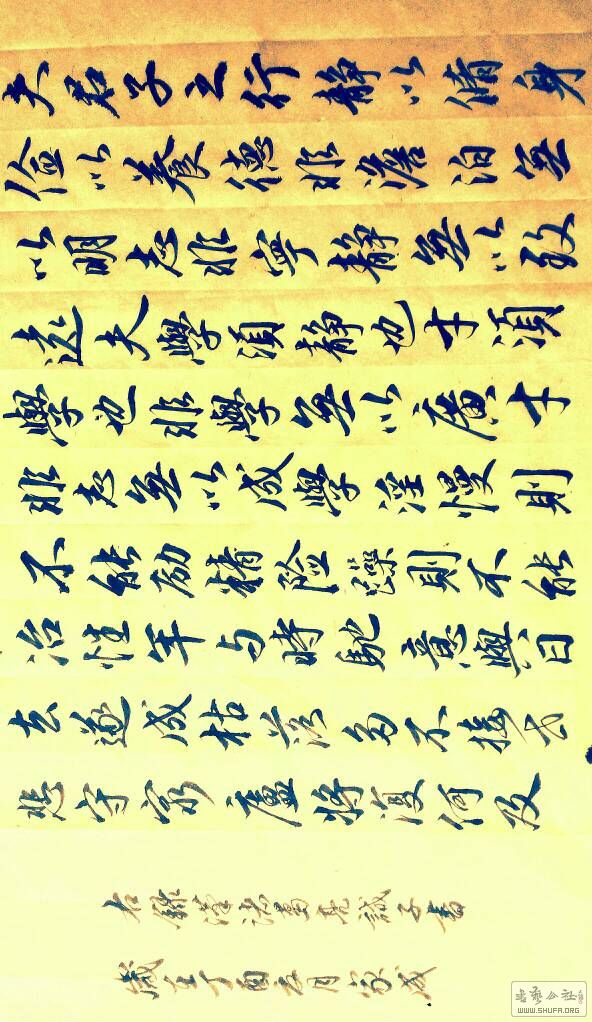 夫君子之行靜以脩身
儉以養德非澹泊無
以明志非寧靜無以致
遠夫學須靜也才須
學也非學無以廣才
非志無以成學淫慢則
不能励精险躁則不能
治性年与時馳意與日
去遂成枯落多不接世
悲守窮廬將復何及
右錄諸葛亮誡子書
歲在丁酉月成
书艺公社
WWW.SHUFA.ORG